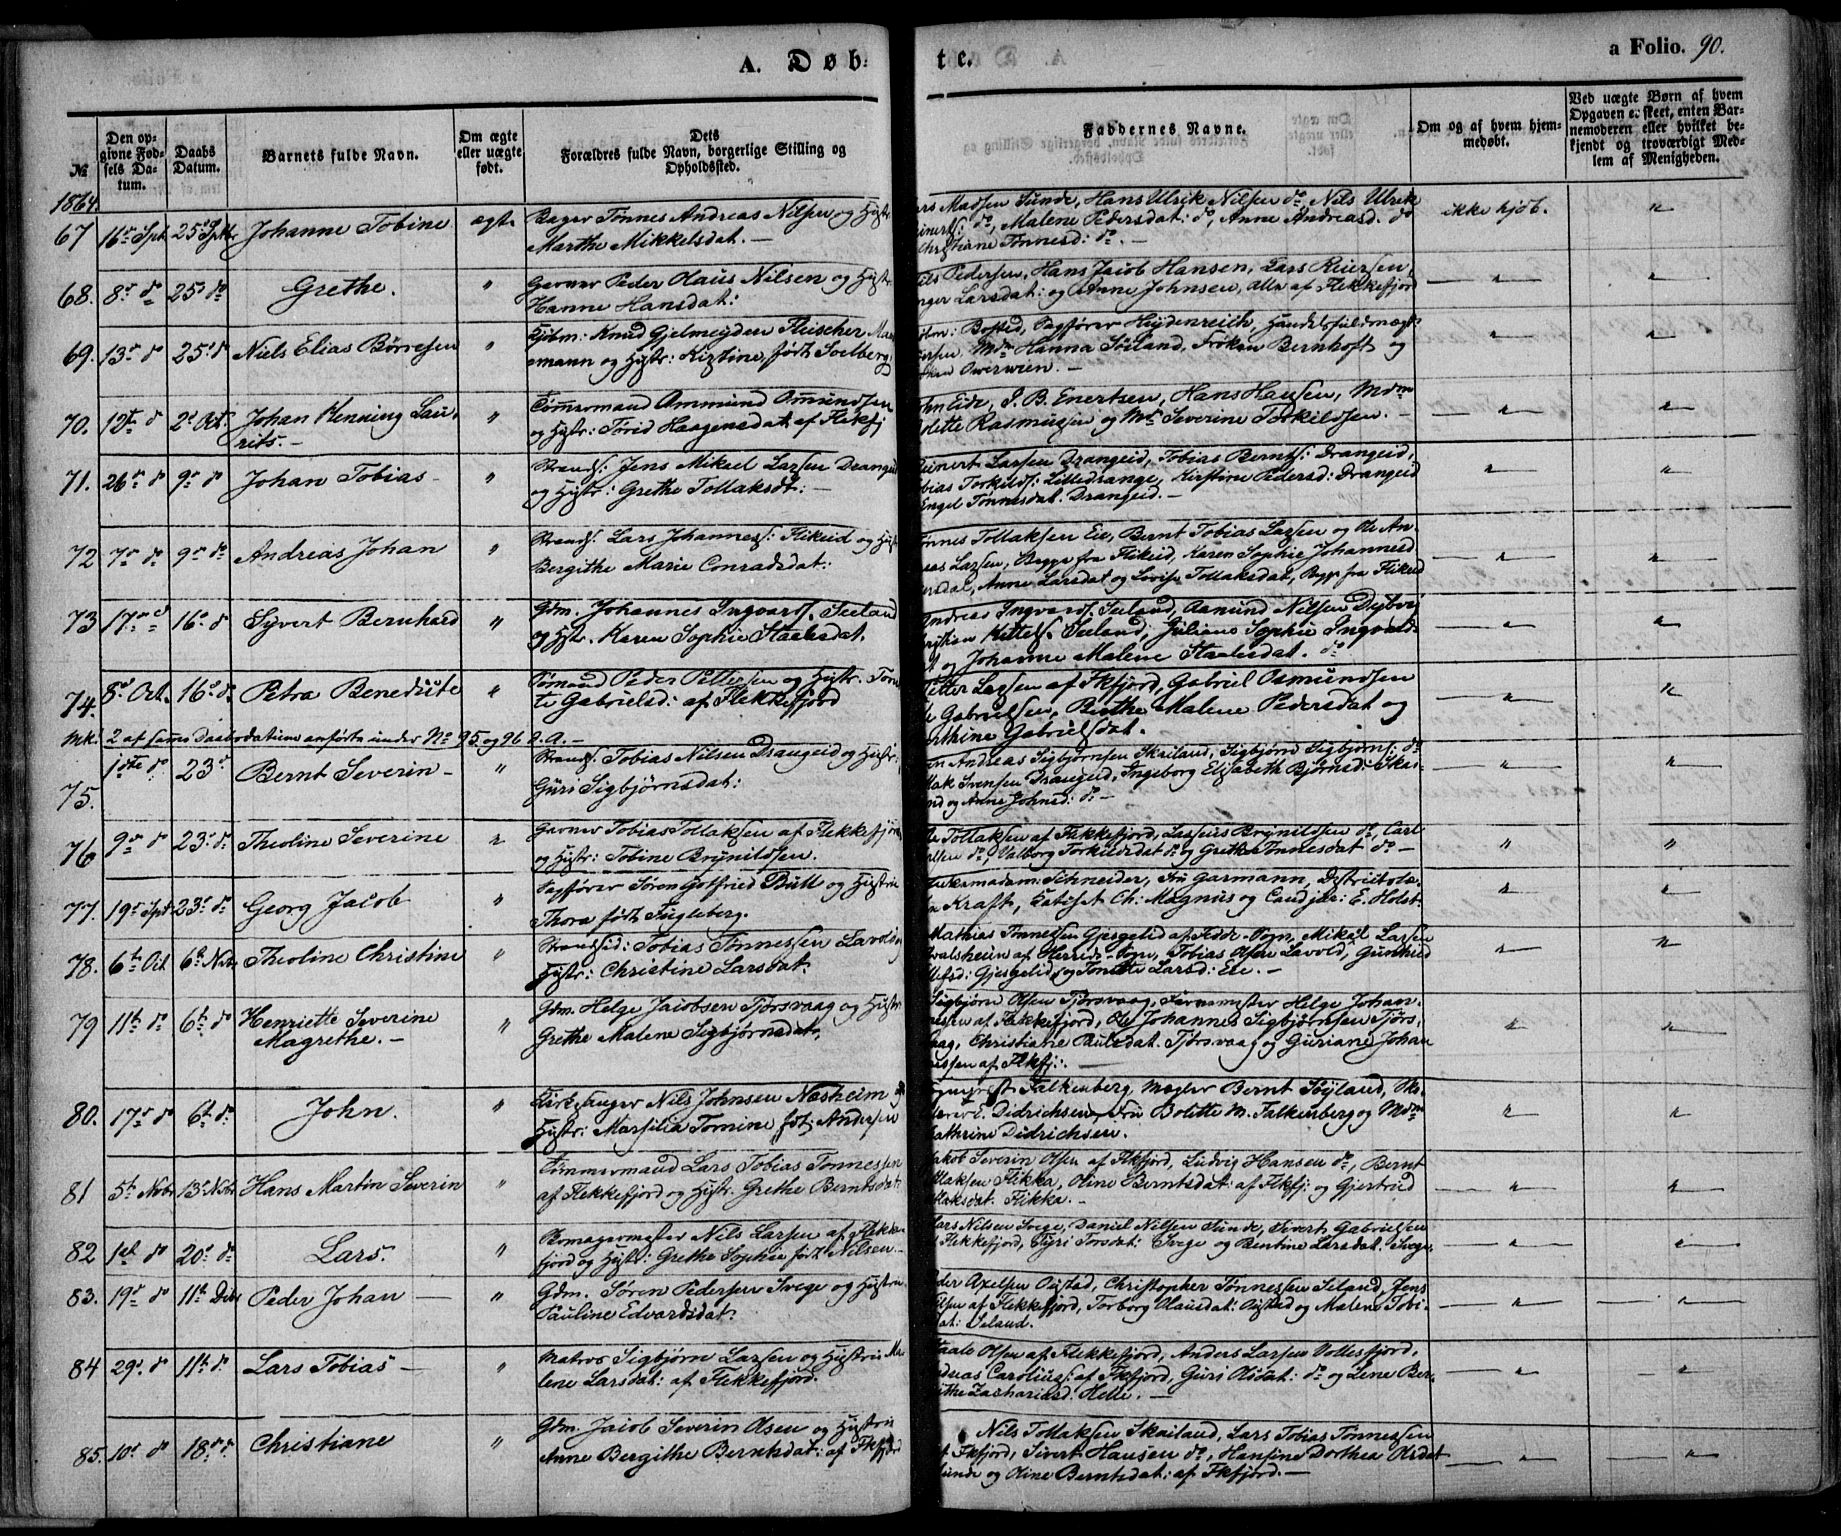 A. Døb-
te.
a Folio. 90.
№
Den op-
givne Fød-
sels Da-
tum.
Daabs
Datum.
Barnets fulde Navn.
Om ægte
eller uægte
født.
Dets
Forældres fulde Navn, borgerlige Stilling og
Opholdssted.
Faddernes Navne.
Om og af hvem hjem-
medøbt.
Ved uægte Børn af hvem
Opgaven er skeet, enten Bar-
nemoderen eller hvilket be-
kjendt og troværdigt Med-
lem af Menigheden.
1864.
67 16de Spt 25de Spthr Johanne Tobine ægt. Bager Tønnes Andreas Nilsen og Hstr
Marthe Mikkelsdat. —
Madsen Sunde, Hans Ulrik Nilsen do, Nils Ulrik
do, Malene Pedersdat: do, Anne Andreasd. do
Tønnesd: do. —
ikke hjdb. "
68. 8de do 25de do Grethe. " Garver Peder Olaus Nilsen og Hstr
Hanne Hansdat:
Pedersen, Hans Jacob Hansen, Lars Reiersen,
Larsdat: og Anne Johnsen, alle af Flekkefjord
69. 13de do 25de do Niels Elias Børresen " Kjøbm: Knud Gjelmeyden Fleischer
emann og Hstr: Kirstine, født Soelberg
Bosted, Sagfører Heydenreich, Handelsfuldmægt
Mdm Hanna Søiland, Frøken Bernhoft og
70. 12te do 2den Oct. Johan Henning Lau-
rits. — " Tømermand Ommund Omundsen
og Hstr: Torid Haagensdat. af Flekfj
Eide, P. B. Enertsen, Hans Hansen, Mdm
Rasmussen og Mad Severine Torkildsen. —
71. 26de do 9de do Johan Tobias — " Strands: Jens Mikael Larsen Drangeid
og Hstr: Grethe Tollaksdt: —
Larsen Drangeid, Tobias Bernts: Drangeid,
Torkilds: Lilledrange, Kirstine Pedersd: Drangeid
Engel Tønnesdat. Drangeid. —
72 7de do 9de do Andreas Johan " Strands. Lars Johannes: Flikeid og Hstr
Bergithe Marie Conradsdat:
Tollaksen Eie, Bernt Tobias Larsen og Ole An-
Larsen, Begge fra Flikeid, Karen Sophie Johannesd
Anne Larsdat og Lovise Tollaksdat, Begge fra Flikeid
73 17de do 16de do Syvert Bernhard " Gdm. Johannes Ingvards. Seeland
og Hstr. Karen Sophie Staalesdat.
Andreas Ingvards. Seeland, Aamund Nilsen Dybvig
Kittels. Seeland, Juliane Sophie Ingvards
og Johanne Malene Staalesdat. do
74. 8de Oct. 16de do Petra Benedicte " Peder Pettersen og Hstr. Tone-
te Gabrielsd: af Flekkefjord
Petter Larsen af Fkfjord, Gabriel Osmundsen
Gabrielsen, Berthe Malene Pedersdat og
Gabrielsdat.
Mk: 2 af samme Daabsdatum anførte under No 95 og 96 d. A. —
75. 1ste do 23de Bernt Severin — " Strands: Tobias Nilsen Drangeid og Hstr:
Guri Sigbjørnsdat:
Andreas Sigbjørnsen Skailand, Sigbjørn Sigbjørns: do
Svensen Drangeid, Ingeborg Elisabeth Bjørnsd: Skai-
og Anne Johnsd: do —
76 9de do 23de do Theoline Severine " Garver Tobias Tollaksen af Flekkefjord
og Hstr: Tobine Brynildsen.
Tollaksen af Flekkefjord, Lassens Brynildsen do, Carl
do, Valborg Torkildsdat do og Grethe Tønnesdat do —
77. 19de Spt. 23de do Georg Jacob " Sagfører Søren Gotfried Bull og Hstru
Thora født Fugleberg.
Schneider, Fru Garmann, Districtslæ-
Kraft, Ch: Magnus og Cand jur: E. Holst
78. 6te Oct 6te Novbr Theoline Christine " Strandsid: Tobias Tønnessen Lavold og
Hstr: Christine Larsdat:
Mathias Tønnessen Gjesgelid af Fedde-Sogn, Mikal Larsen
af Herrids-Sogn, Tobias Olsen Lavold, Gunhild
Gjesgelid og Tonette Larsd: Eie. —
79 11te do 6te do Henriette Severine
Magrethe. — " Gdm. Helge Jacobsen Tjørsvaag og Hstr
Grethe Malene Sigbjørnsdat,
Sigbjørn Olsen Tjørsvaag, Farvemester Helge Johan-
nessen af Flekkefjord, Ole Johannes Sigbjørnsen Tjørs-
vaag, Christiane Paulsdat. Tjørsvaag og Guriane Johan
af Flkfj: —
80. 17de do 6te do John. " Kirkesanger Nils Johnsen Næsheim og
Hstr: Marsilia Tomine, fdt: Andersen
Falkenberg, Mægler Bernt Søyland,
Didrichsen, Fru Bolette M. Falkenberg og Mdm
Cathrine Didrichsen.
81 5te Novbr 13de Novbr Hans Martin Severin " Tømmermand Lars Tobias Tønnessen
af Flekkefjord og Hstr. Grethe Berntsdat:
Jakob Severin Olsen af Fkfjord, Ludvig Hansen do, Bernt
Flikka, Oline Berntsdat: af Flkfj: og Gjertrud
Flikka. —
82 1ste do 20de do Lars. " Bomagermester Nils Larsen af Flekke-
fjord og Hstr: Grethe Sophie født Nilsen —
Lars Nilsen Svege, Daniel Nilsen Sunde, Sivert Gabrielsen
Flekkefjord, Torsdat: Svege og Bentine Larsdat: Svege,
83. 19de do 11te Decbr Peder Johan — " Gdm. Søren Pedersen Svege og Hstru
Pauline Edvardsdat:
Axelsen Oistad, Christopher Tønnessen Seland, Jens
af Flekkefjord, Torborg Olausdat: Oistad og Malene Tobi-
Seland.
84 29de do 11te do Lars Tobias — " Matros Sigbjørn Larsen og Hstru Ma-
lene Larsdat: af Flekkefjord.
Staale Olsen af Flekkefjord, Anders Larsen Vollesfjord,
Andreas Carolius: af Fkfjord, Guri Olsdat: do og Lene Ber-
githe Zachariasd. Helle. —
85. 10de do 18de do Christiane " Gdm. Jacob Severin Olsen og Hstru
Anne Bergithe Berntsdat: af Flkfjord
Nils Tollaksen Skailand, Lars Tobias Tønnessen
Fkfjord, Sivert Hansen do, Hansine Dorthea Olsdat
Sunde og Oline Berntsdat: af Fkfjord. —